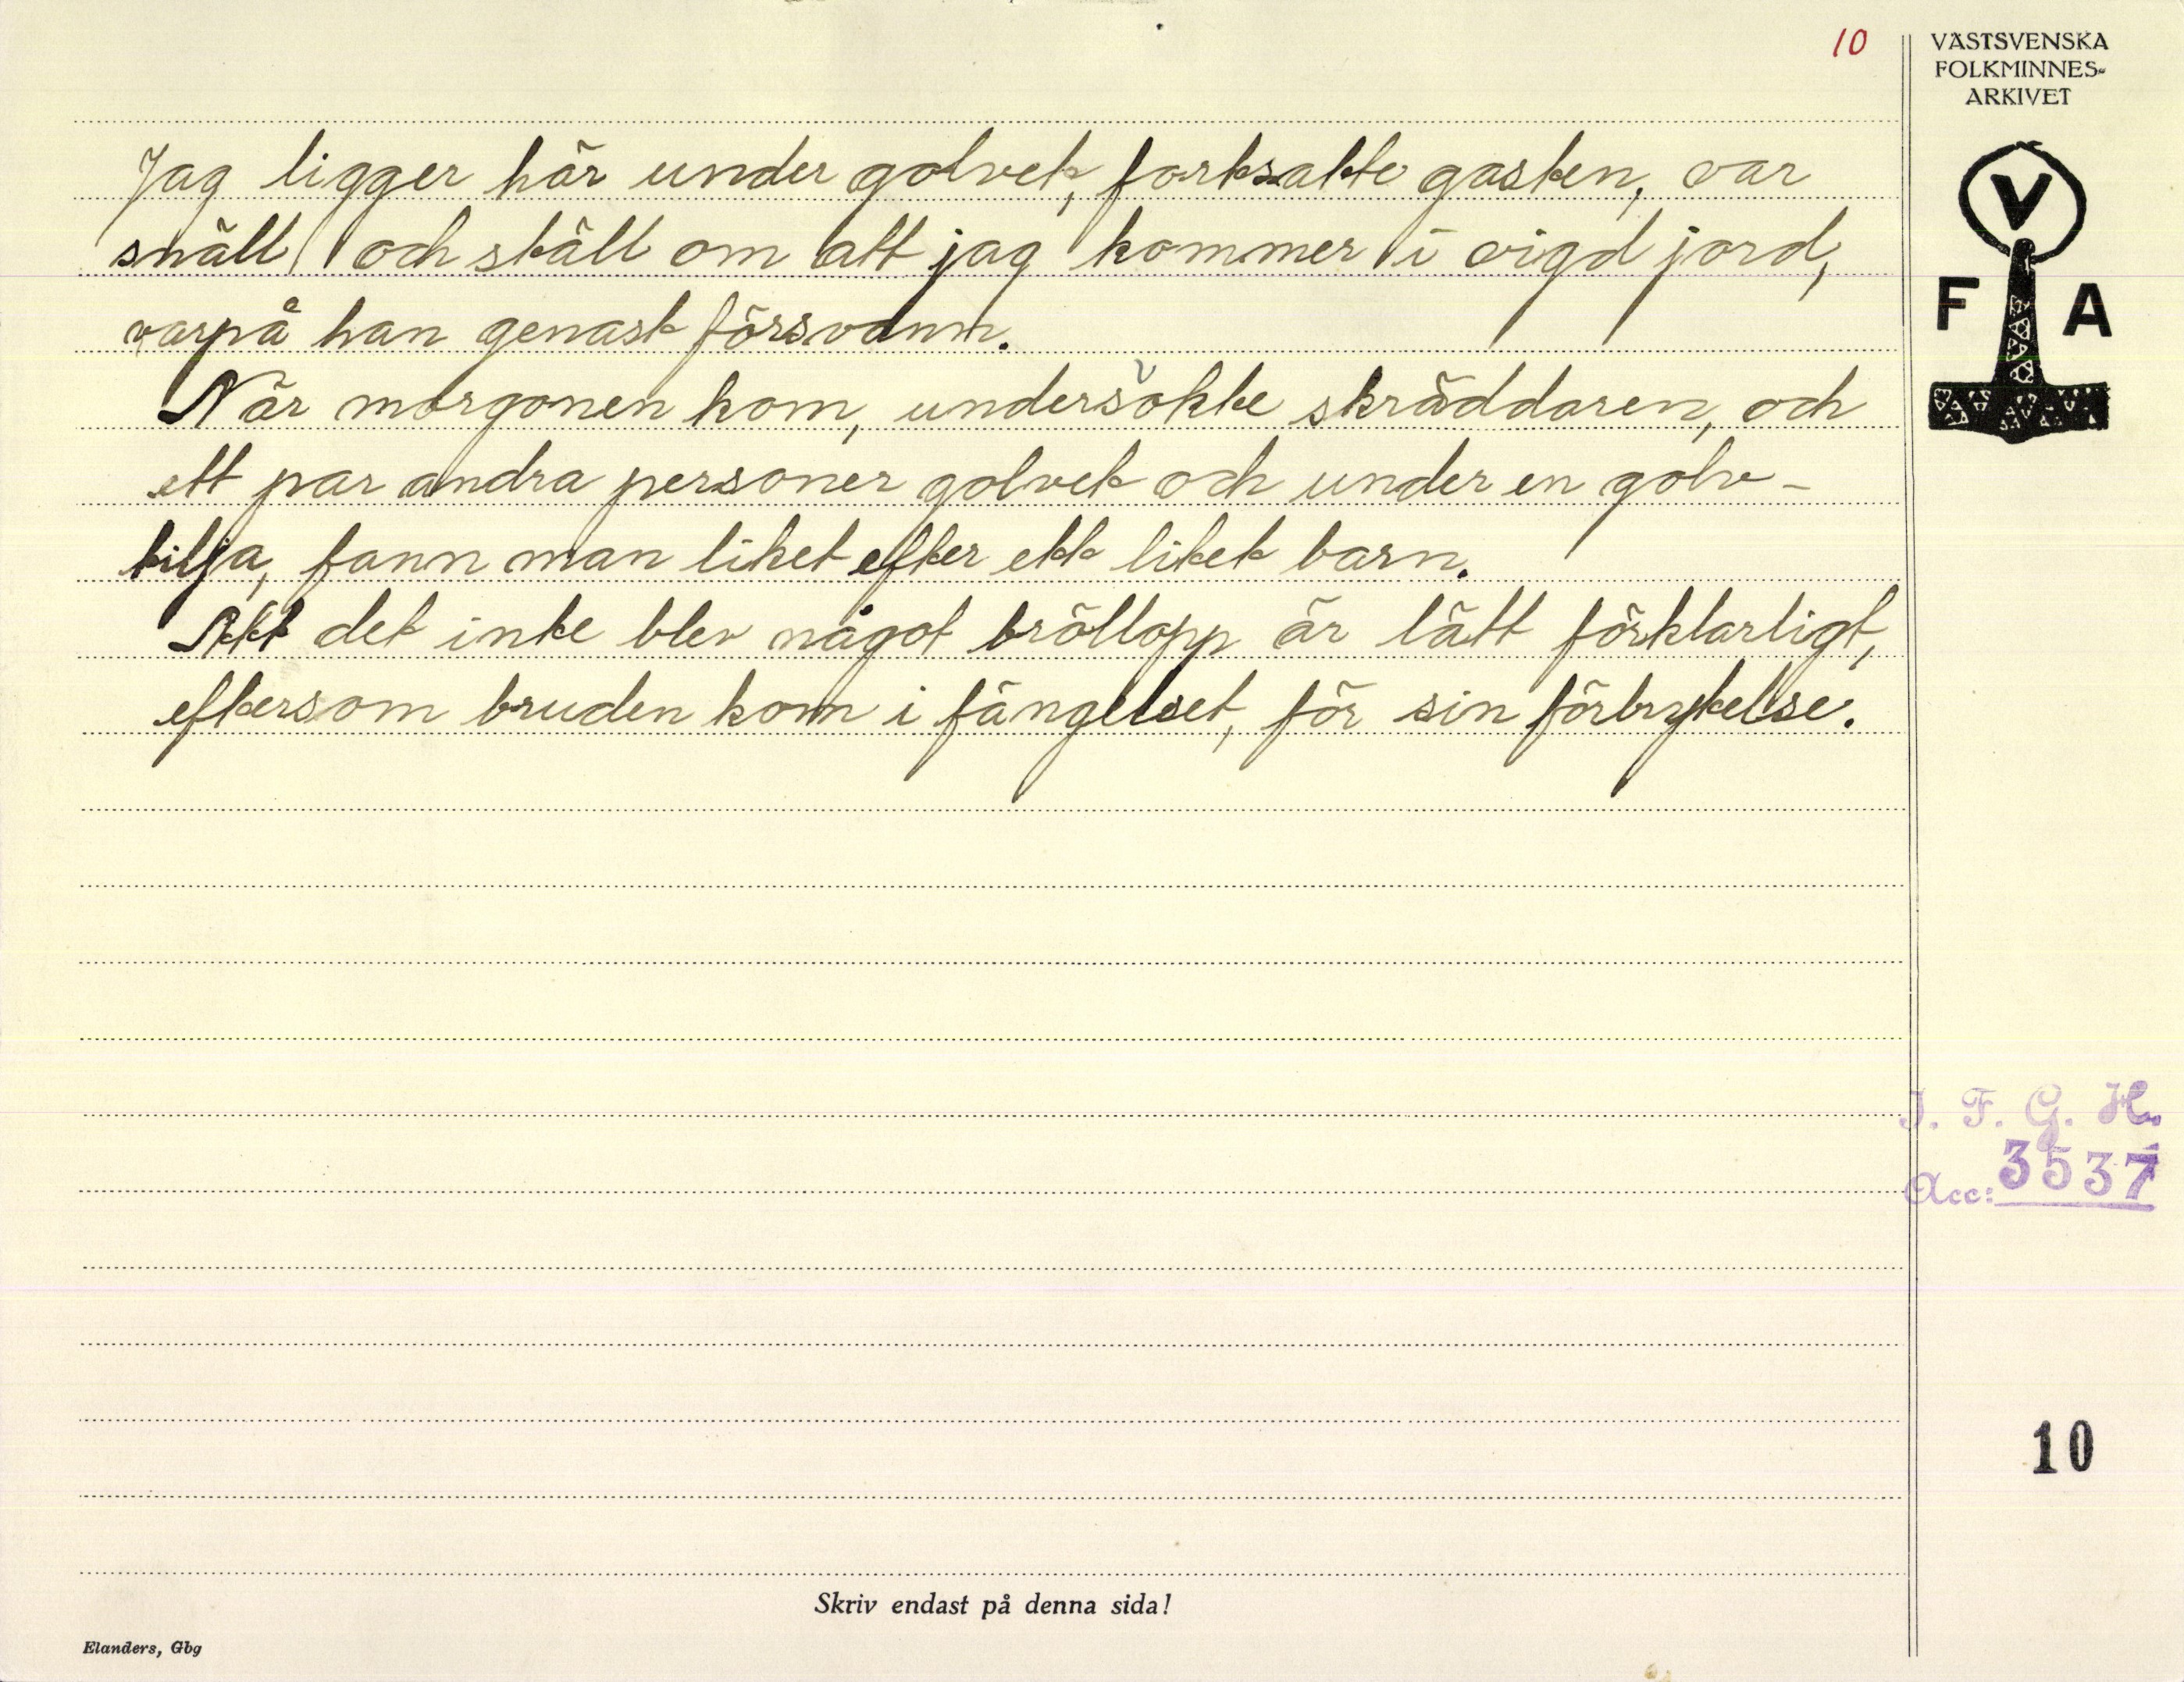 10
VÄSTSVENSKA
FOLKMINNES-
ARKIVET
V
F A
Jag ligger här under golvet, fortsatte gasten, var
snäll och ställ om att jag kommer i vigd jord,
varpå han genast försvann.
När morgonen kom, undersökte skräddaren, och
ett par andra personer golvet och under en golv-
tilja, fann man liket efter ett litet barn.
Att det inte blev något bröllopp är lätt förklarligt,
eftersom bruden kom i fängelset, för sin förbrytelse.
I. F. G. H.
Acc: 3537
10
Skriv endast på denna sida!
Elanders, Gbg